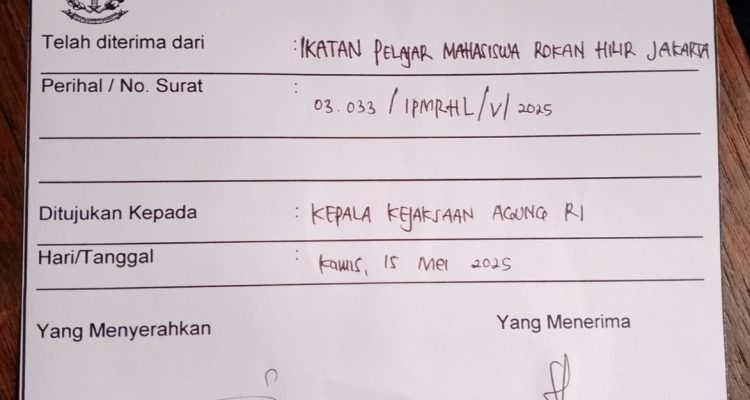 Telah diterima dari : IKATAN PELAJAR MAHASISWA ROKAN HILIR JAKARTA
Perihal / No. Surat :
03.033 / IPMRHL / V / 2025
Ditujukan Kepada : KEPALA KEJAKSAAN AGUNG RI
Hari/Tanggal : Kamis, 15 Mei 2025
Yang Menyerahkan Yang Menerima